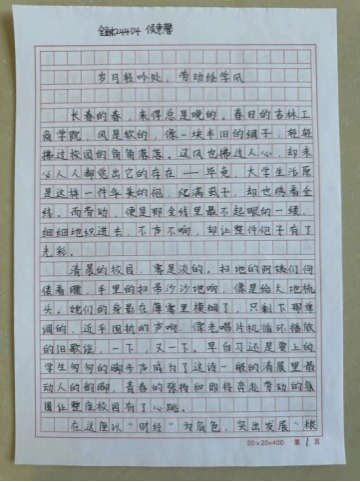 金融24404 侯惠馨
岁月轻吟处，劳动绘学风
长春的春，来得总是晚的。春日的吉林工
商学院，风是软的，像一块半旧的绸子，轻轻
拂过校园的角角落落。这风也拂过人心，却未
必人人都觉出它的存在——毕竟，大学生活原
是这样一件华美的袍，爬满虱子，却也绣着金
线。而劳动，便是那金线里最不起眼的一缕，
细细地织进去，不声不响，却让整件袍子有了
光彩。
清晨的校园，雾是淡的。扫地的阿姨们佝
偻着腰，手里的扫帚沙沙地响，像是给大地梳
头。她们的身影在薄雾里模糊了，只剩下那单
调的，近乎固执的声响。像老唱片机循环播放
的旧歌谣，一下，又一下。早自习还是要上的
学生匆匆的脚步声成为了这诗一般的清晨里最
动人的韵脚，青春的张扬和即将奔赴劳动的氛
围让整座校园有了心跳。
在这座以“财经”为底色，突出发展“粮
20×20=400 第 1 页